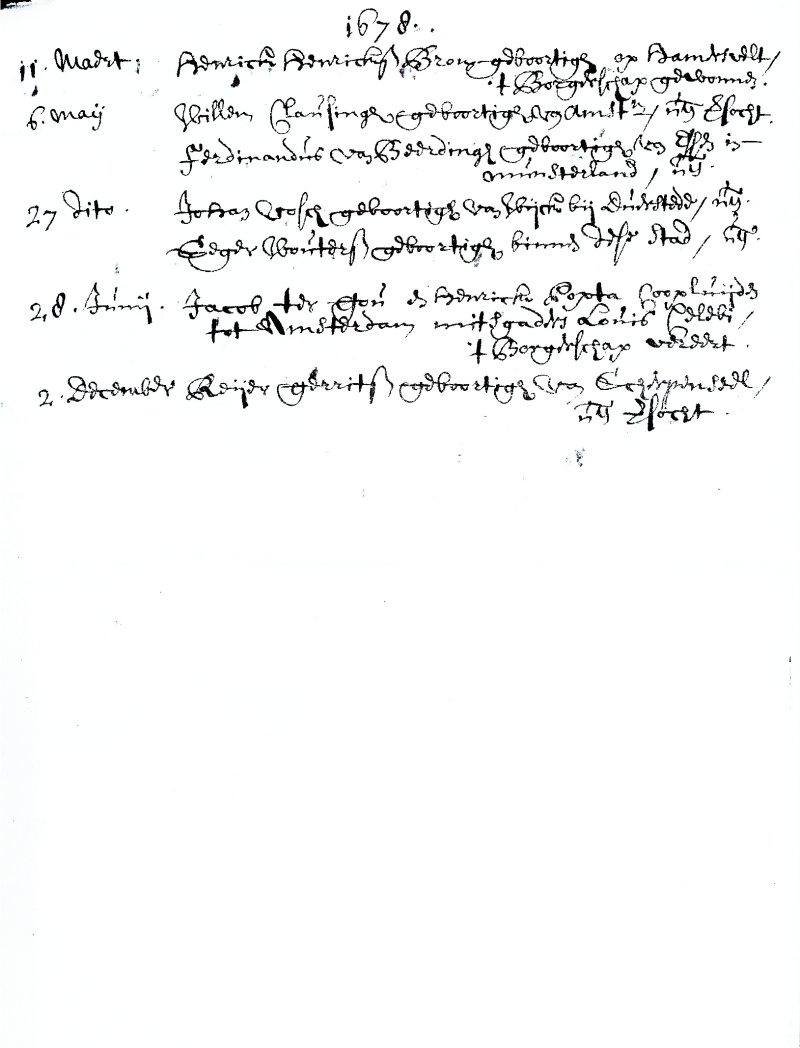 1678.
11. Maert: Henrick Henricks Brom geboortigh op Hamersvelt,
't Borgerschap gewonnen.
6. Maij Willem Clausinge geboortigh van Amst
Ferdinandus van Beerdinge geboortigh van in
munsterland,
27 dito. Johan Vosch geboortigh van Wijck bij Duerstede,
Seger Wouters geboortigh binnen dese stad,
28. Junij. Jacob ter Gou en Henrick Hopta Coopluijden
tot Amsterdam mitsgaders Louis
't Borgerschap vereert.
2. December Reijer Gerrits geboortigh van Scherpenseel,